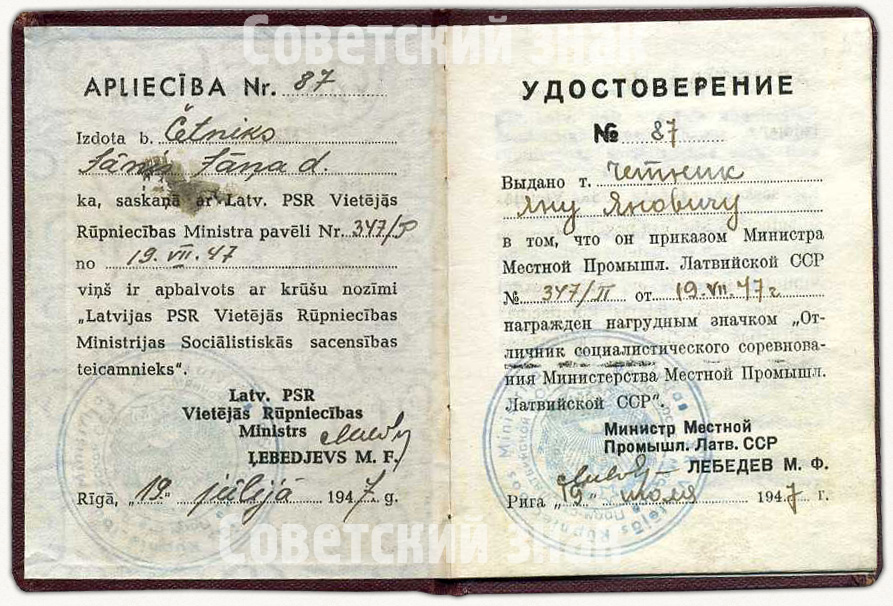 Советский знак
APLIECĪBA Nr. 87
Izdota b. Četniko
Jāņa d.
ka, saskaņā ar Latv. PSR Vietējās
Rūpniecības Ministra pavēli Nr. 347/P
no 19. VII. 47
viņš ir apbalvots ar krūšu nozīmi
„Latvijas PSR Vietējās Rūpniecības
Ministrijas Sociālistiskās sacensības
teicamnieks“.
Latv. PSR
Vietējās Rūpniecības
Ministrs
ĻEBEDJEVS M. F.
Rīgā, „19.“ jūlijā 1947. g.
УДОСТОВЕРЕНИЕ
№ 87
Выдано т. Четник
Яну Яновичу
в том, что он приказом Министра
Местной Промышл. Латвийской ССР
№ 347/П от 19. VII. 47 г
награжден нагрудным значком „От-
личник социалистического соревнова-
ния Министерства Местной Промышл.
Латвийской ССР“.
Министр Местной
Промышл. Латв. ССР
ЛЕБЕДЕВ М. Ф.
Рига „19“ июля 1947 г.
Советский знак